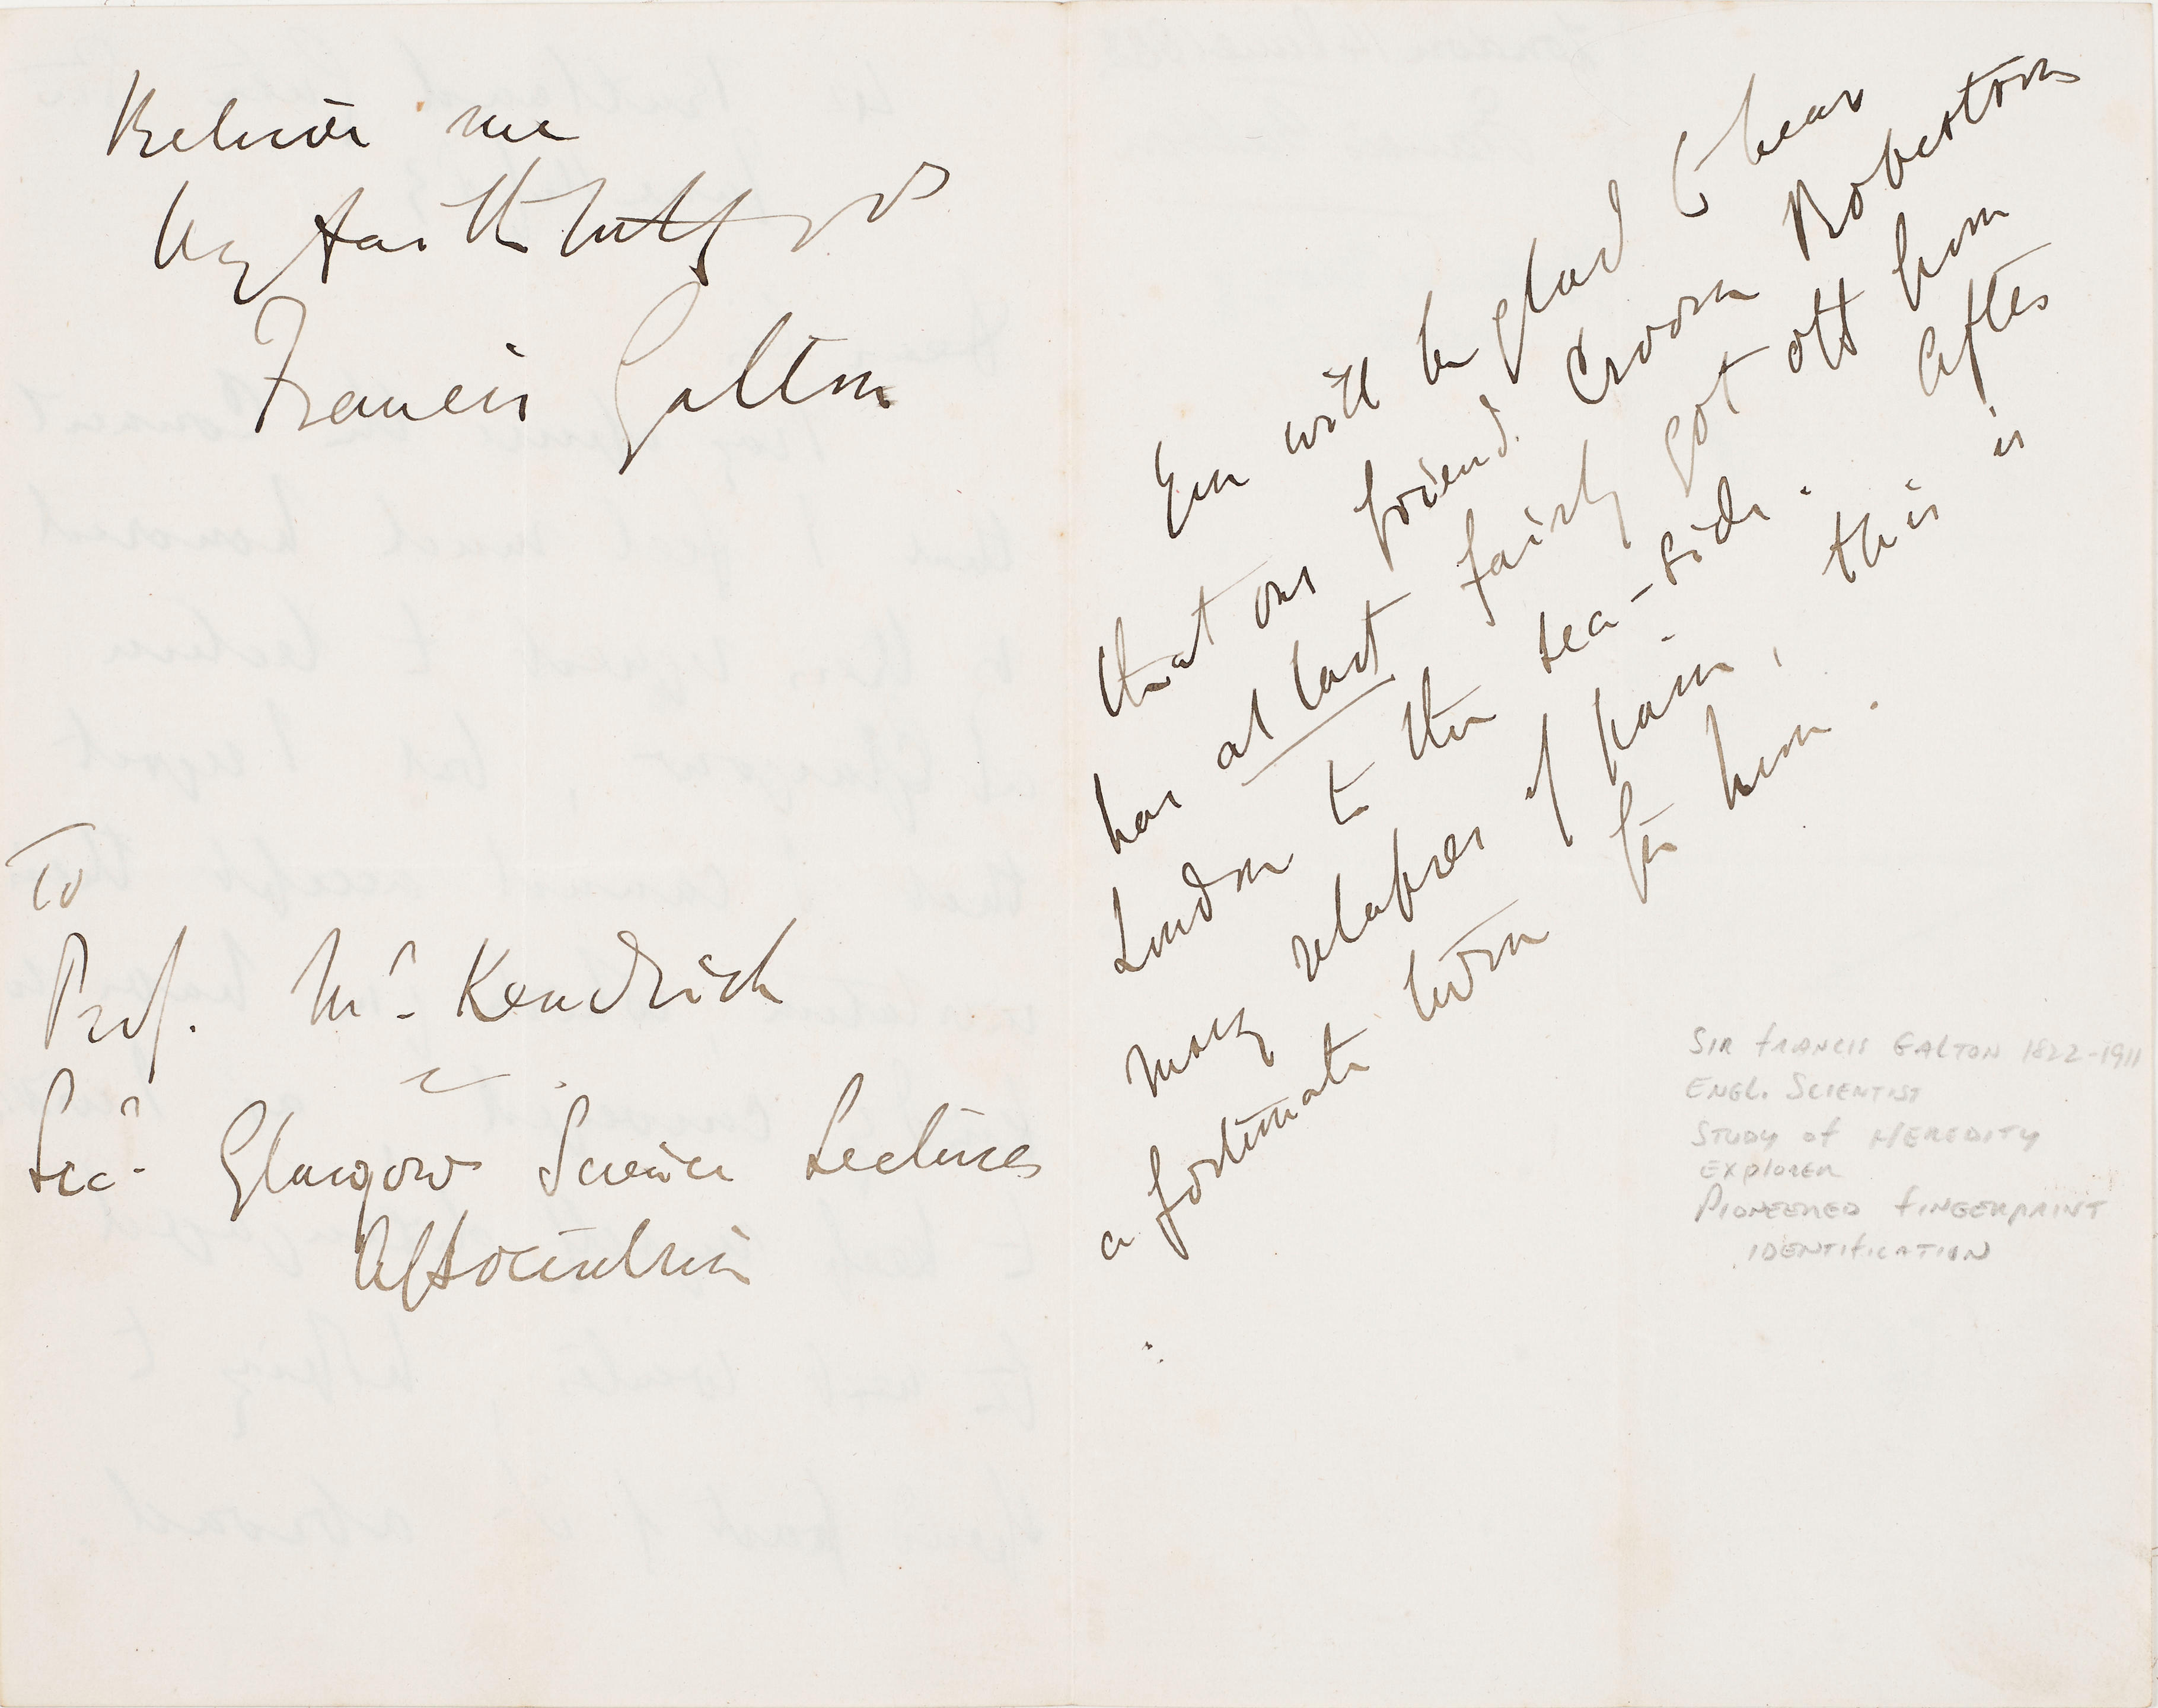 Believe me
very faithfully yrs
Francis Galton
To
Prof. McKendrick
Secr Glasgow Science Lectures
Association
You will be glad to hear
that our friend Croom Robertson
has at last fairly got off from
London to the sea-side. After
many relapses of pain, this is
a fortunate turn for him.
SIR FRANCIS GALTON 1822-1911
ENGL. SCIENTIST
STUDY OF HEREDITY
EXPLORER
PIONEERED FINGERPRINT
IDENTIFICATION